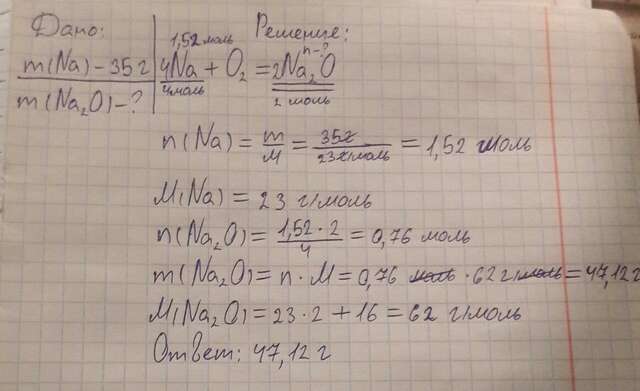 Дано: Решение:
1,52 моль n-?
m(Na) - 35 г 4Na + O₂ = 2Na₂O
4 моль 2 моль
m(Na₂O) - ?
n(Na) = m/M = 35г/23г/моль = 1,52 моль
M(Na) = 23 г/моль
n(Na₂O) = 1,52 · 2/4 = 0,76 моль
m(Na₂O) = n · M = 0,76 моль · 62 г/моль = 47,12 г
M(Na₂O) = 23 · 2 + 16 = 62 г/моль
Ответ: 47,12 г